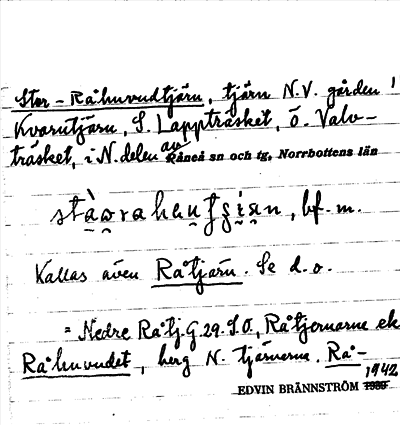 Stor-Råhuvudtjärn, tjärn N.V. gården
Kvarntjärn, S. Lappträsket, ö. Valv-
träsket, i N. delen av Råneå sn och tg, Norrbottens län
bf. m.
Kallas även Råtjärn. Se d.o.
= Nedre Råtj. G. 29. S.O., Råtjernarne ek
Råhuvudet, berg N. tjärnarne. Rå-
1942
EDVIN BRÄNNSTRÖM 1939